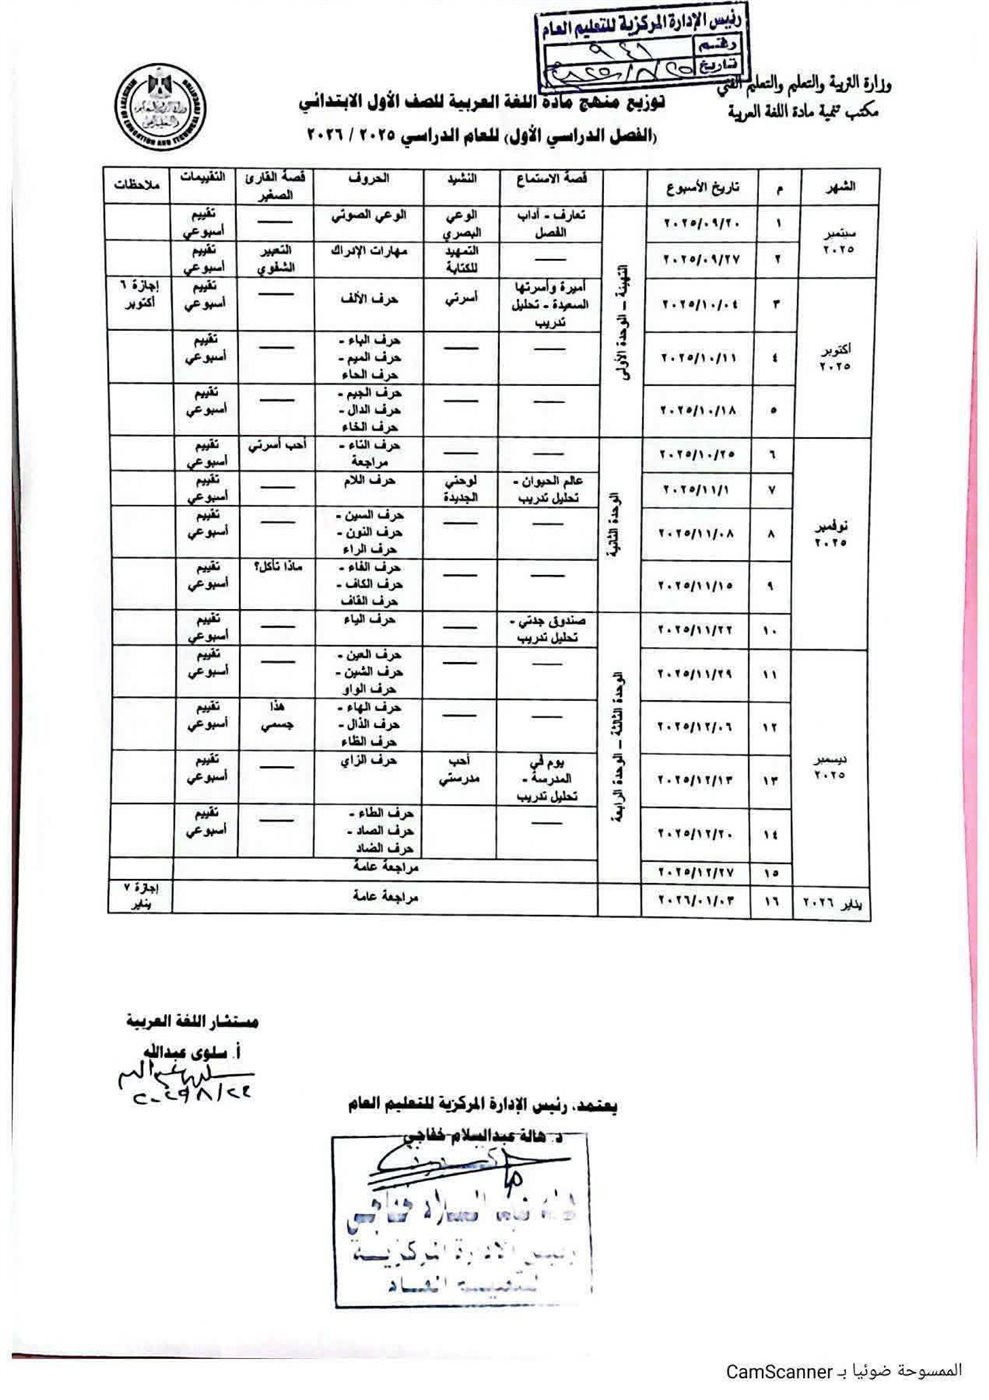 رئيس الإدارة المركزية للتعليم العام
رقم ٩٤١
تاريخ
وزارة التربية والتعليم والتعليم الفني
مكتب تنمية مادة اللغة العربية
توزيع منهج مادة اللغة العربية للصف الأول الابتدائي
(الفصل الدراسي الأول) للعام الدراسي ٢٠٢٥ / ٢٠٢٦
الشهر م تاريخ الأسبوع قصة الاستماع النشيد الحروف قصة القارئ الصغير التقييمات ملاحظات
سبتمبر ٢٠٢٥
التهيئة – الوحدة الأولى
١ ٢٠٢٥/٠٩/٢٠ تعارف - آداب الفصل الوعي البصري الوعي الصوتي —— تقييم أسبوعي
٢ ٢٠٢٥/٠٩/٢٧ —— التمهيد للكتابة مهارات الإدراك التعبير الشفوي تقييم أسبوعي
أكتوبر ٢٠٢٥
٣ ٢٠٢٥/١٠/٠٤ أميرة وأسرتها السعيدة - تحليل تدريب أسرتي حرف الألف —— تقييم أسبوعي إجازة ٦ أكتوبر
٤ ٢٠٢٥/١٠/١١ —— —— حرف الباء - حرف الميم - حرف الحاء —— تقييم أسبوعي
٥ ٢٠٢٥/١٠/١٨ —— —— حرف الجيم - حرف الدال - حرف الخاء —— تقييم أسبوعي
نوفمبر ٢٠٢٥
الوحدة الثانية
٦ ٢٠٢٥/١٠/٢٥ —— —— حرف التاء - مراجعة أحب أسرتي تقييم أسبوعي
٧ ٢٠٢٥/١١/١ عالم الحيوان - تحليل تدريب لوحتي الجديدة حرف اللام —— تقييم أسبوعي
٨ ٢٠٢٥/١١/٠٨ —— —— حرف السين - حرف النون - حرف الراء —— تقييم أسبوعي
٩ ٢٠٢٥/١١/١٥ —— —— حرف الفاء - حرف الكاف - حرف القاف ماذا تأكل؟ تقييم أسبوعي
الوحدة الثالثة – الوحدة الرابعة
١٠ ٢٠٢٥/١١/٢٢ صندوق جدتي - تحليل تدريب —— حرف الياء —— تقييم أسبوعي
ديسمبر ٢٠٢٥
١١ ٢٠٢٥/١١/٢٩ —— —— حرف العين - حرف الشين - حرف الواو —— تقييم أسبوعي
١٢ ٢٠٢٥/١٢/٠٦ —— —— حرف الهاء - حرف الذال - حرف الظاء هذا جسمي تقييم أسبوعي
١٣ ٢٠٢٥/١٢/١٣ يوم في المدرسة - تحليل تدريب أحب مدرستي حرف الزاي —— تقييم أسبوعي
١٤ ٢٠٢٥/١٢/٢٠ —— حرف الطاء - حرف الصاد - حرف الضاد —— تقييم أسبوعي
١٥ ٢٠٢٥/١٢/٢٧ مراجعة عامة
يناير ٢٠٢٦ ١٦ ٢٠٢٦/٠١/٠٣ مراجعة عامة إجازة ٧ يناير
مستشار اللغة العربية
أ. سلوى عبدالله
يعتمد، رئيس الإدارة المركزية للتعليم العام
د. هالة عبدالسلام خفاجي
هالة عبد السلام خفاجي
رئيس الإدارة المركزية
الممسوحة ضوئيا بـ CamScanner